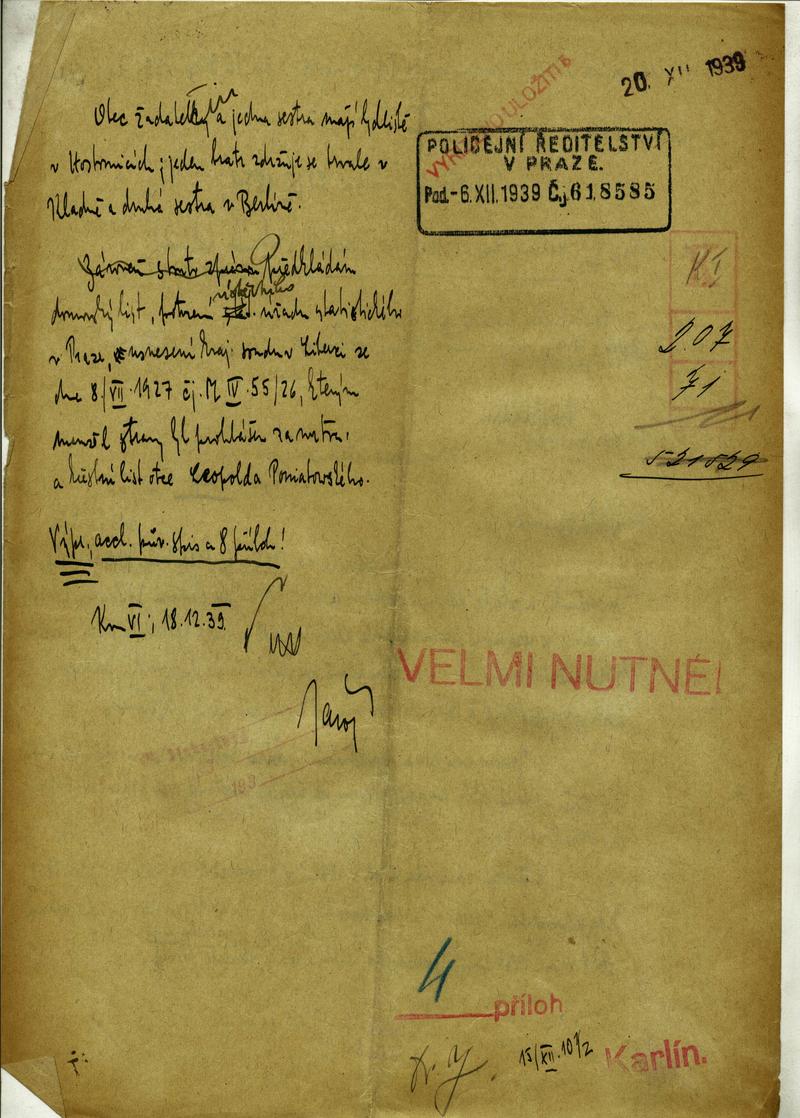 Otec žadatelky a jedna sestra mají bydliště
v Hostomicích; jeden bratr zdržuje se trvale v
Kladně a druhá sestra v Berlíně.
Předkládám
domovský list, úřadu statistického
v Praze, usnesení kraj. soudu v Liberci ze
dne 8/VII.1927 čj. M IV 55/26, kterým
strany byl prohlášen za
a křestní list otce Leopolda Poniatowského.
Výpr., accl. pův. spis a 8 příloh!
Km VI; 18.12.39.
20. XII 1939
POLICEJNÍ ŘEDITELSTVÍ
V PRAZE.
Pod.-6.XII.1939 Čj.618585
K I
207
71
521529
VELMI NUTNÉ!
193
4
příloh
15/XII.10 1/2
Karlín.